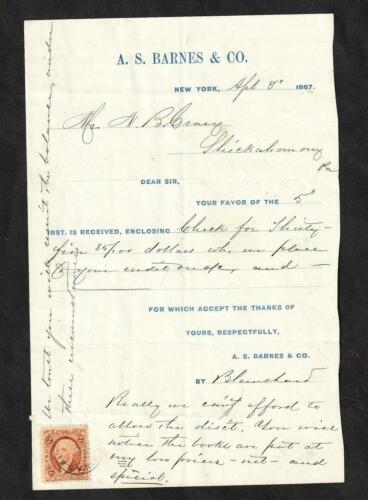 A. S. BARNES & CO.
NEW YORK, Apl 8" 1867.
Mr. N. B. Crary
Shickshinny
Pa
DEAR SIR,
YOUR FAVOR OF THE 5"
INST. IS RECEIVED, ENCLOSING Check for Thirty-
five 85/100 dollars wh. we place
to your credit and
FOR WHICH ACCEPT THE THANKS OF
YOURS, RESPECTFULLY,
A. S. BARNES & CO.
BY Blanchard
Really we can't afford to
allow the disct. You will
notice the books are put at
very low prices - net - and
special.
We trust you will remit the balance, under
these